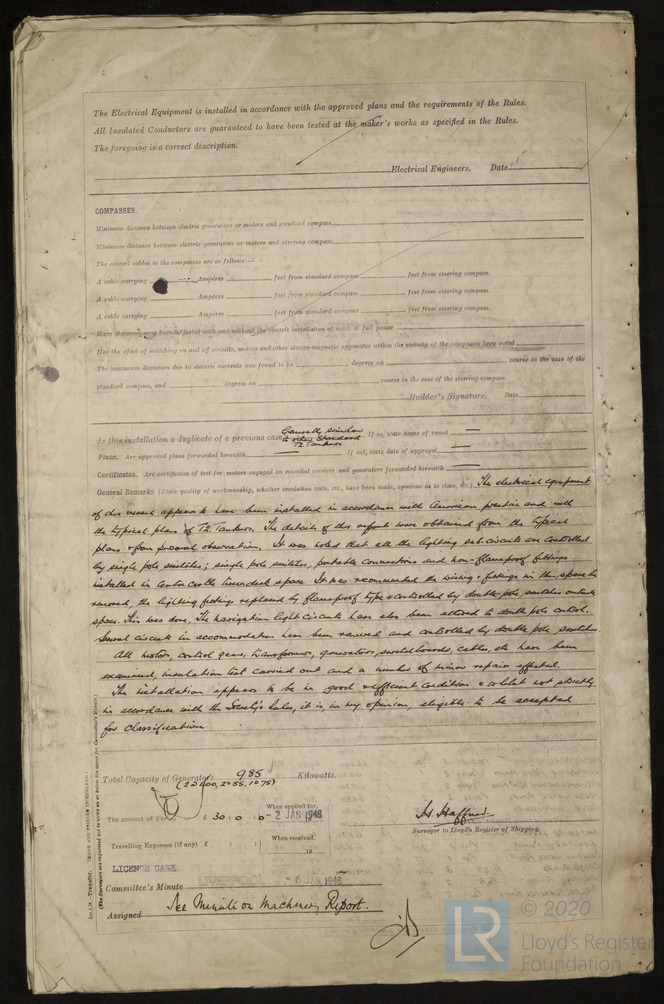 The Electrical Equipment is installed in accordance with the approved plans and the requirements of the Rules.
All Insulated Conductors are guaranteed to have been tested at the maker's works as specified in the Rules.
The foregoing is a correct description.
Electrical Engineers. Date
COMPASSES.
Minimum distance between electric generators or motors and standard compass
Minimum distance between electric generators or motors and steering compass
The nearest cables to the compasses are as follows:—
A cable carrying Ampères feet from standard compass feet from steering compass.
A cable carrying Ampères feet from standard compass feet from steering compass.
A cable carrying Ampères feet from standard compass feet from steering compass.
Have the compasses been adjusted with and without the electric installation at work at full power
Has the effect of switching on and off circuits, motors and other electro-magnetic apparatus within the vicinity of the compasses been noted
The maximum deviation due to electric currents was found to be degrees on course in the case of the
standard compass, and degrees on course in the case of the steering compass.
Builder's Signature. Date
Generally similar
Is this installation a duplicate of a previous case to other standard If so, state name of vessel —
T2 Tankers
Plans. Are approved plans forwarded herewith — If not, state date of approval —
Certificates. Are certificates of test for motors engaged on essential services and generators forwarded herewith —
General Remarks (State quality of workmanship, whether insulation tests, etc., have been made, opinions as to class, etc.) The electrical equipment
of this vessel appears to have been installed in accordance with American practice and with
the typical plans of T2 Tankers. The details of this report were obtained from the typical
plans & from personal observation. It was noted that all the lighting sub-circuits are controlled
by single pole switches; single pole switches, portable connections and non-flameproof fittings
installed in centre castle tweendeck space. It was recommended the wiring & fittings in this space be
removed, the lighting fittings replaced by flameproof type & controlled by double pole switches outside
space. This was done. The navigation light circuits have also been altered to double pole control.
Several circuits in accommodation have been rewired and controlled by double pole switches
All motors, control gear, transformers, generators, switchboards, cables, etc have been
examined, insulation test carried out and a number of minor repairs effected.
The installation appears to be in good & efficient condition & whilst not strictly
in accordance with the Society's Rules, it is, in my opinion, eligible to be accepted
for classification.
Total Capacity of Generators 985 Kilowatts.
The amount of Fee £ 30 : 0 : 0 When applied for, - 2 JAN 1948
Surveyor to Lloyd's Register of Shipping.
Travelling Expenses (if any) £ : : When received, 19
LICENCE CASE
Committee's Minute LIVERPOOL - 6 JAN 1948
Assigned See Minute on Machinery Report.
LR © 2020
Lloyd's Register
Foundation